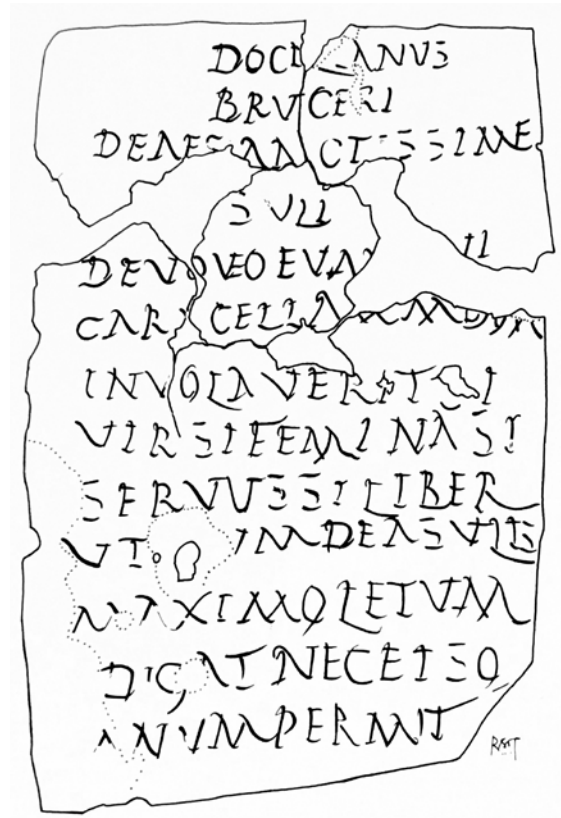 DOCILIANVS
BRVCERI
DEAE SANCTISSIME
SVLI
DEVOVEO EVM
CARACELLAM
INVOLAVERIT SI
VIR SI FEMINA SI
SERVVS SI LIBER
DEA SVLIS
MAXIMO LETVM
DIGAT NEC EI SO
MNVM PERMIT
RSOT